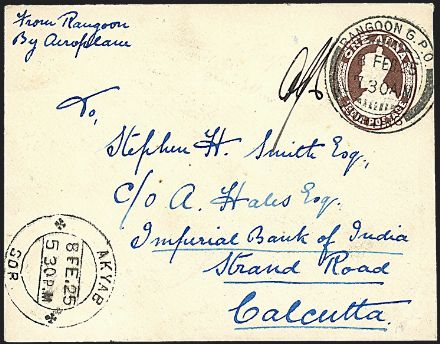 From Rangoon
By Aeroplane
RANGOON G.P.O.
8 FEB
7.30A
To,
Stephen H. Smith Esq.,
C/o A. Hales Esq.
Imperial Bank of India
Strand Road
Calcutta.
AKYAB
8 FE. 25
5.30 P.M
SOR